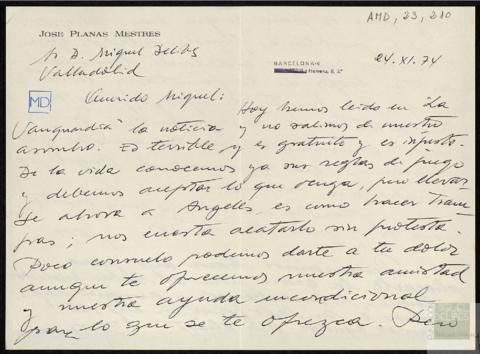 JOSE PLANAS MESTRES
AMD, 23, 210
Sr. D. Miguel Delibes
Valladolid
BARCELONA-6
Herrera, 8, 2º
24-XI.74
MD
Querido Miguel:
Hoy hemos leído en "La
Vanguardia" la noticia y no salimos de nuestro
asombro. Es terrible y es gratuito y es injusto.
De la vida conocemos ya sus reglas de juego
y debemos aceptar lo que venga, pero llevar
se ahora a Angeles, es como hacer tram
pas; nos cuesta acatarlo sin protesta.
Poco consuelo podemos darte a tu dolor
aunque te ofrecemos nuestra amistad
y nuestra ayuda incondicional
para lo que se te ofrezca. Pero